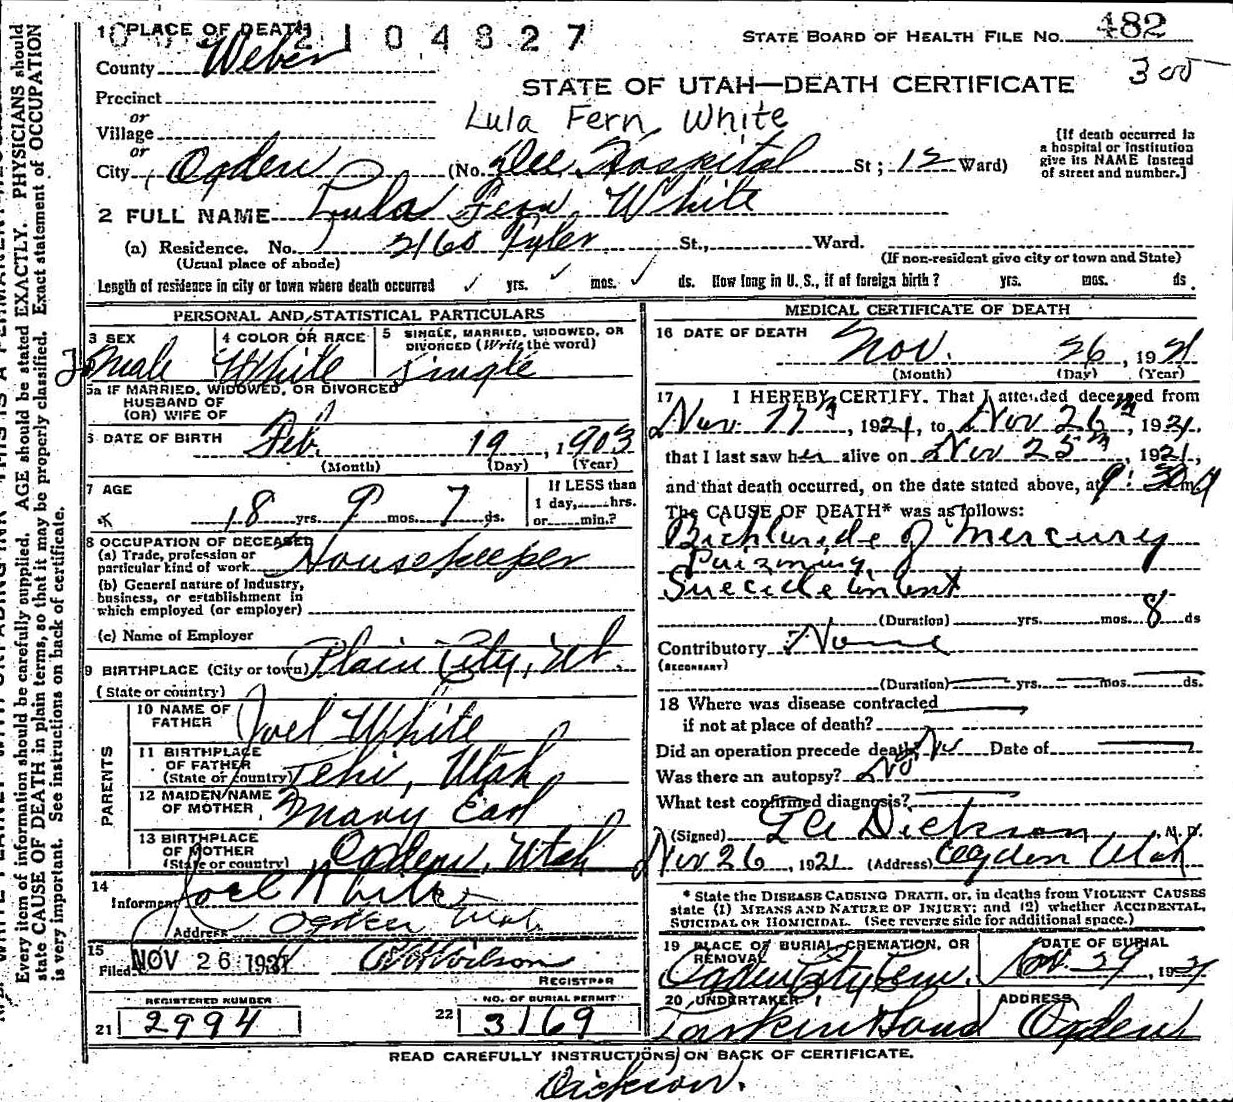 1 PLACE OF DEATH
2104827
STATE BOARD OF HEALTH FILE NO. 482
County Weber
300
STATE OF UTAH—DEATH CERTIFICATE
Precinct
or
Village
Lula Fern White
or
City Ogden (No. Dee Hospital St; 12 Ward)
[If death occurred in
a hospital or institution
give its NAME instead
of street and number.]
2 FULL NAME Lula Fern White
(a) Residence. No. 2160 Tyler St., Ward.
(Usual place of abode) (If non-resident give city or town and State)
Length of residence in city or town where death occurred ✓ yrs. ✓ mos. ✓ ds. How long in U. S., if of foreign birth? yrs. mos. ds.
PERSONAL AND STATISTICAL PARTICULARS
3 SEX 4 COLOR OR RACE 5 SINGLE, MARRIED, WIDOWED, OR
DIVORCED (Write the word)
Female White Single
5a IF MARRIED, WIDOWED, OR DIVORCED
HUSBAND OF
(OR) WIFE OF
6 DATE OF BIRTH Feb. 19, 1903
(Month) (Day) (Year)
7 AGE
18 yrs. 9 mos. 7 ds.
If LESS than
1 day, hrs.
or min.?
8 OCCUPATION OF DECEASED
(a) Trade, profession or
particular kind of work Housekeeper
(b) General nature of industry,
business, or establishment in
which employed (or employer)
(c) Name of Employer
9 BIRTHPLACE (City or town) Plain City, Ut.
(State or country)
PARENTS
10 NAME OF
FATHER Joel White
11 BIRTHPLACE
OF FATHER
(State or country) Lehi, Utah
12 MAIDEN NAME
OF MOTHER Mary Earl
13 BIRTHPLACE
OF MOTHER
(State or country) Ogden, Utah
14
Informent Joel White
Address Ogden Utah
15
Filed NOV 26 1921 Wilson
REGISTRAR
REGISTERED NUMBER
21 2994
NO. OF BURIAL PERMIT
22 3169
MEDICAL CERTIFICATE OF DEATH
16 DATE OF DEATH
Nov. 26, 1921
(Month) (Day) (Year)
17 I HEREBY CERTIFY. That I attended deceased from
Nov. 17th, 1921, to Nov 26th, 1921,
that I last saw her alive on Nov 25th, 1921,
and that death occurred, on the date stated above, at 9:30 m
The CAUSE OF DEATH* was as follows:
Bichloride of Mercury
Poizoning
Suecide intent
(Duration) yrs. mos. 8 ds
Contributory None
(SECONDARY)
(Duration) yrs. mos. ds.
18 Where was disease contracted
if not at place of death?
Did an operation precede death? No Date of
Was there an autopsy? No
What test confirmed diagnosis?
(Signed) Dickson, M. D.
Nov 26, 1921 (Address) Ogden Utah
* State the DISEASE CAUSING DEATH, or, in deaths from VIOLENT CAUSES
state (1) MEANS AND NATURE OF INJURY; and (2) whether ACCIDENTAL,
SUICIDAL OR HOMICIDAL. (See reverse side for additional space.)
19 PLACE OF BURIAL, CREMATION, OR
REMOVAL
DATE OF BURIAL
Ogden City Cem. Nov. 29, 1921
20 UNDERTAKER ADDRESS
Larkin Ogden
READ CAREFULLY INSTRUCTIONS ON BACK OF CERTIFICATE.
Dickson.
Every item of information should be carefully supplied. AGE should be stated EXACTLY. PHYSICIANS should
state CAUSE OF DEATH in plain terms, so that it may be properly classified. Exact statement of OCCUPATION
is very important. See instructions on back of certificate.